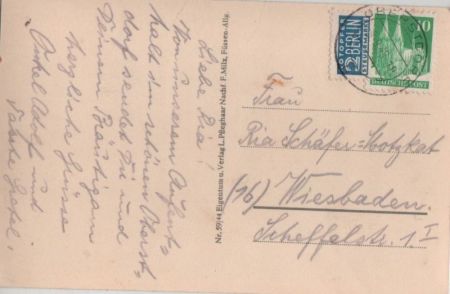 Liebe Ria!
Von unserem Aufent=
halt im schönen Oberst=
dorf sendet Dir und
Deinem Bräutigam
herzliche Grüsse
Onkel Adolf und
Tante Gretel.
Nr. 59/44 Eigentum u. Verlag L. Pflugbaar Nachf. F. Milz, Füssen-Allg.
NOTOPFER
2 BERLIN
STEUERMARKE
10
DEUTSCHE POST
Frau
Ria Schäfer=Lotzkat
(16) Wiesbaden.
Scheffelstr. 1 I